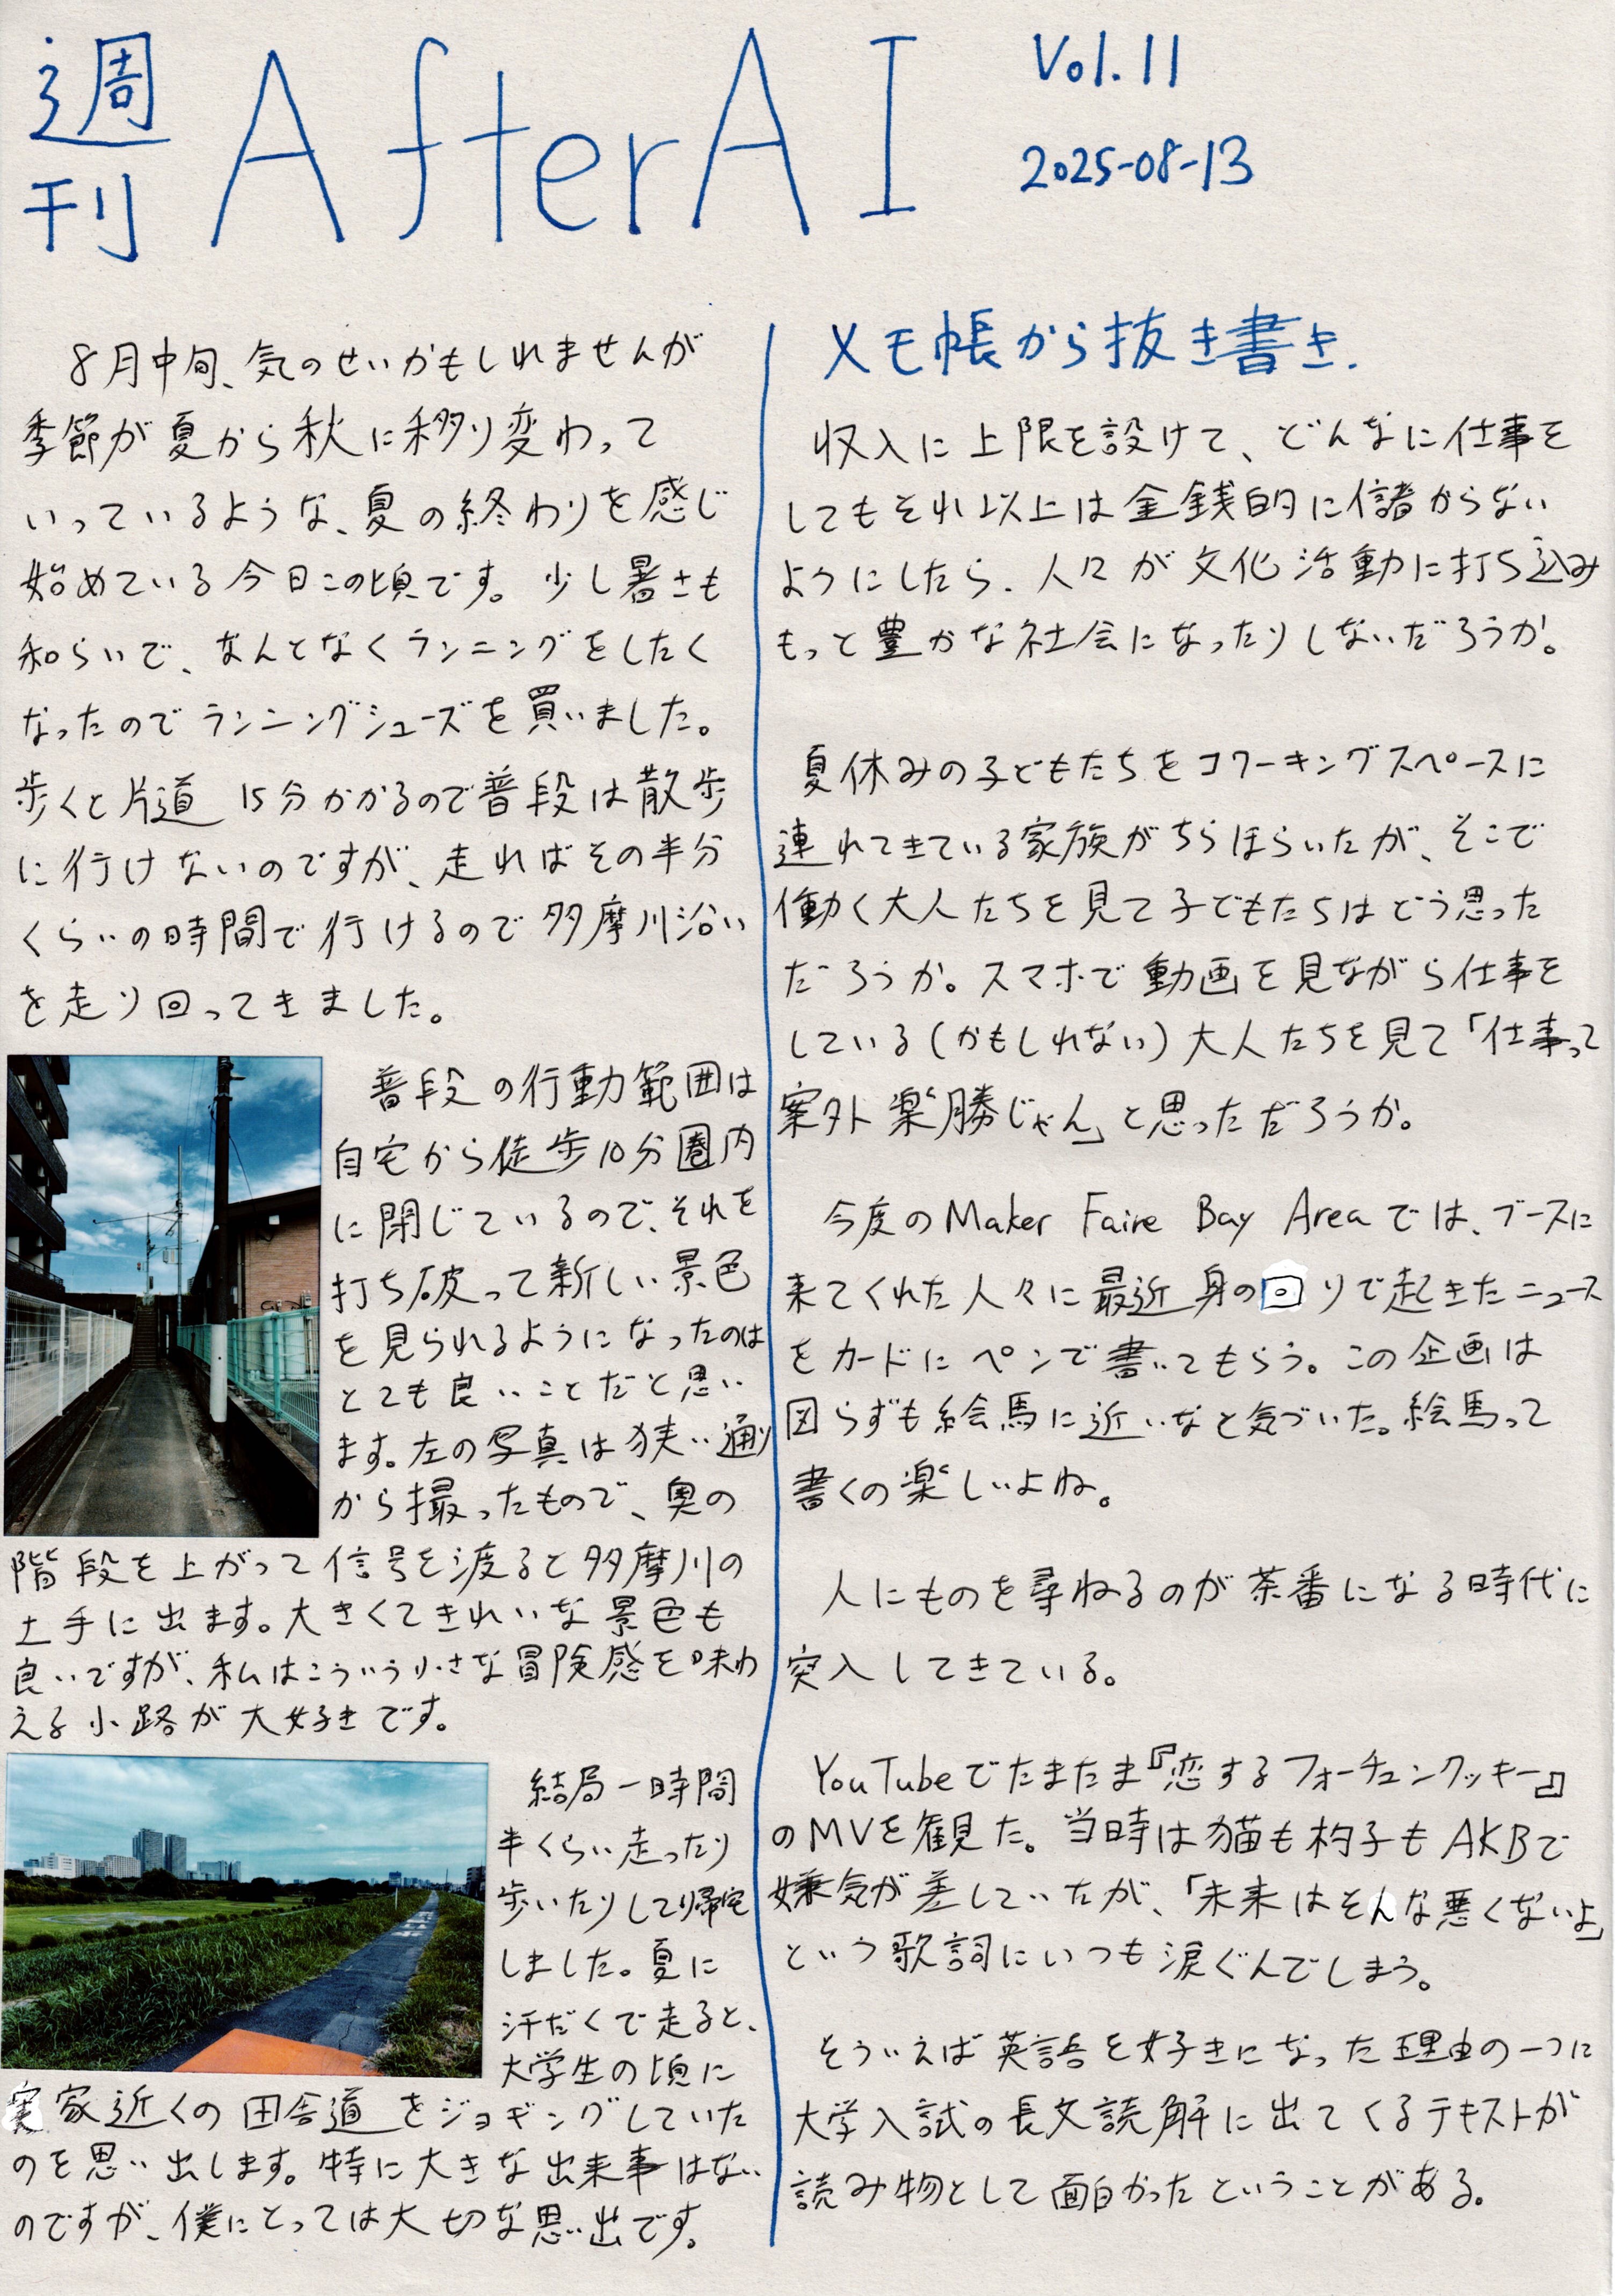 週刊 AfterAI
Vol.11
2025-08-13
8月中旬、気のせいかもしれませんが
季節が夏から秋に移り変わって
いっているような、夏の終わりを感じ
始めている今日この頃です。少し暑さも
和らいで、なんとなくランニングをしたく
なったのでランニングシューズを買いました。
歩くと片道 15分かかるので普段は散歩
に行けないのですが、走ればその半分
くらいの時間で行けるので多摩川沿い
を走り回ってきました。
普段の行動範囲は
自宅から徒歩10分圏内
に閉じているので、それを
打ち破って新しい景色
を見られるようになったのは
とても良いことだと思い
ます。左の写真は狭い通り
から撮ったもので、奥の
階段を上がって信号を渡ると多摩川の
土手に出ます。大きくてきれいな景色も
良いですが、私はこういう小さな冒険感を味わ
える小路が大好きです。
結局一時間
半くらい走ったり
歩いたりして帰宅
しました。夏に
汗だくで走ると、
大学生の頃に
実家近くの田舎道をジョギングしていた
のを思い出します。特に大きな出来事はない
のですが、僕にとっては大切な思い出です。
メモ帳から抜き書き.
収入に上限を設けて、どんなに仕事を
してもそれ以上は金銭的に儲からない
ようにしたら、人々が文化活動に打ち込み
もっと豊かな社会になったりしないだろうか。
夏休みの子どもたちをコワーキングスペースに
連れてきている家族がちらほらいたが、そこで
働く大人たちを見て子どもたちはどう思った
だろうか。スマホで動画を見ながら仕事を
している(かもしれない)大人たちを見て「仕事って
案外楽勝じゃん」と思っただろうか。
今度のMaker Faire Bay Areaでは、ブースに
来てくれた人々に最近身の回りで起きたニュース
をカードにペンで書いてもらう。この企画は
図らずも絵馬に近いなと気づいた。絵馬って
書くの楽しいよね。
人にものを尋ねるのが茶番になる時代に
突入してきている。
YouTubeでたまたま『恋するフォーチュンクッキー』
のMVを観た。当時は猫も杓子もAKBで
嫌気が差していたが、「未来はそんな悪くないよ」
という歌詞にいつも涙ぐんでしまう。
そういえば英語を好きになった理由の一つに
大学入試の長文読解に出てくるテキストが
読み物として面白かったということがある。